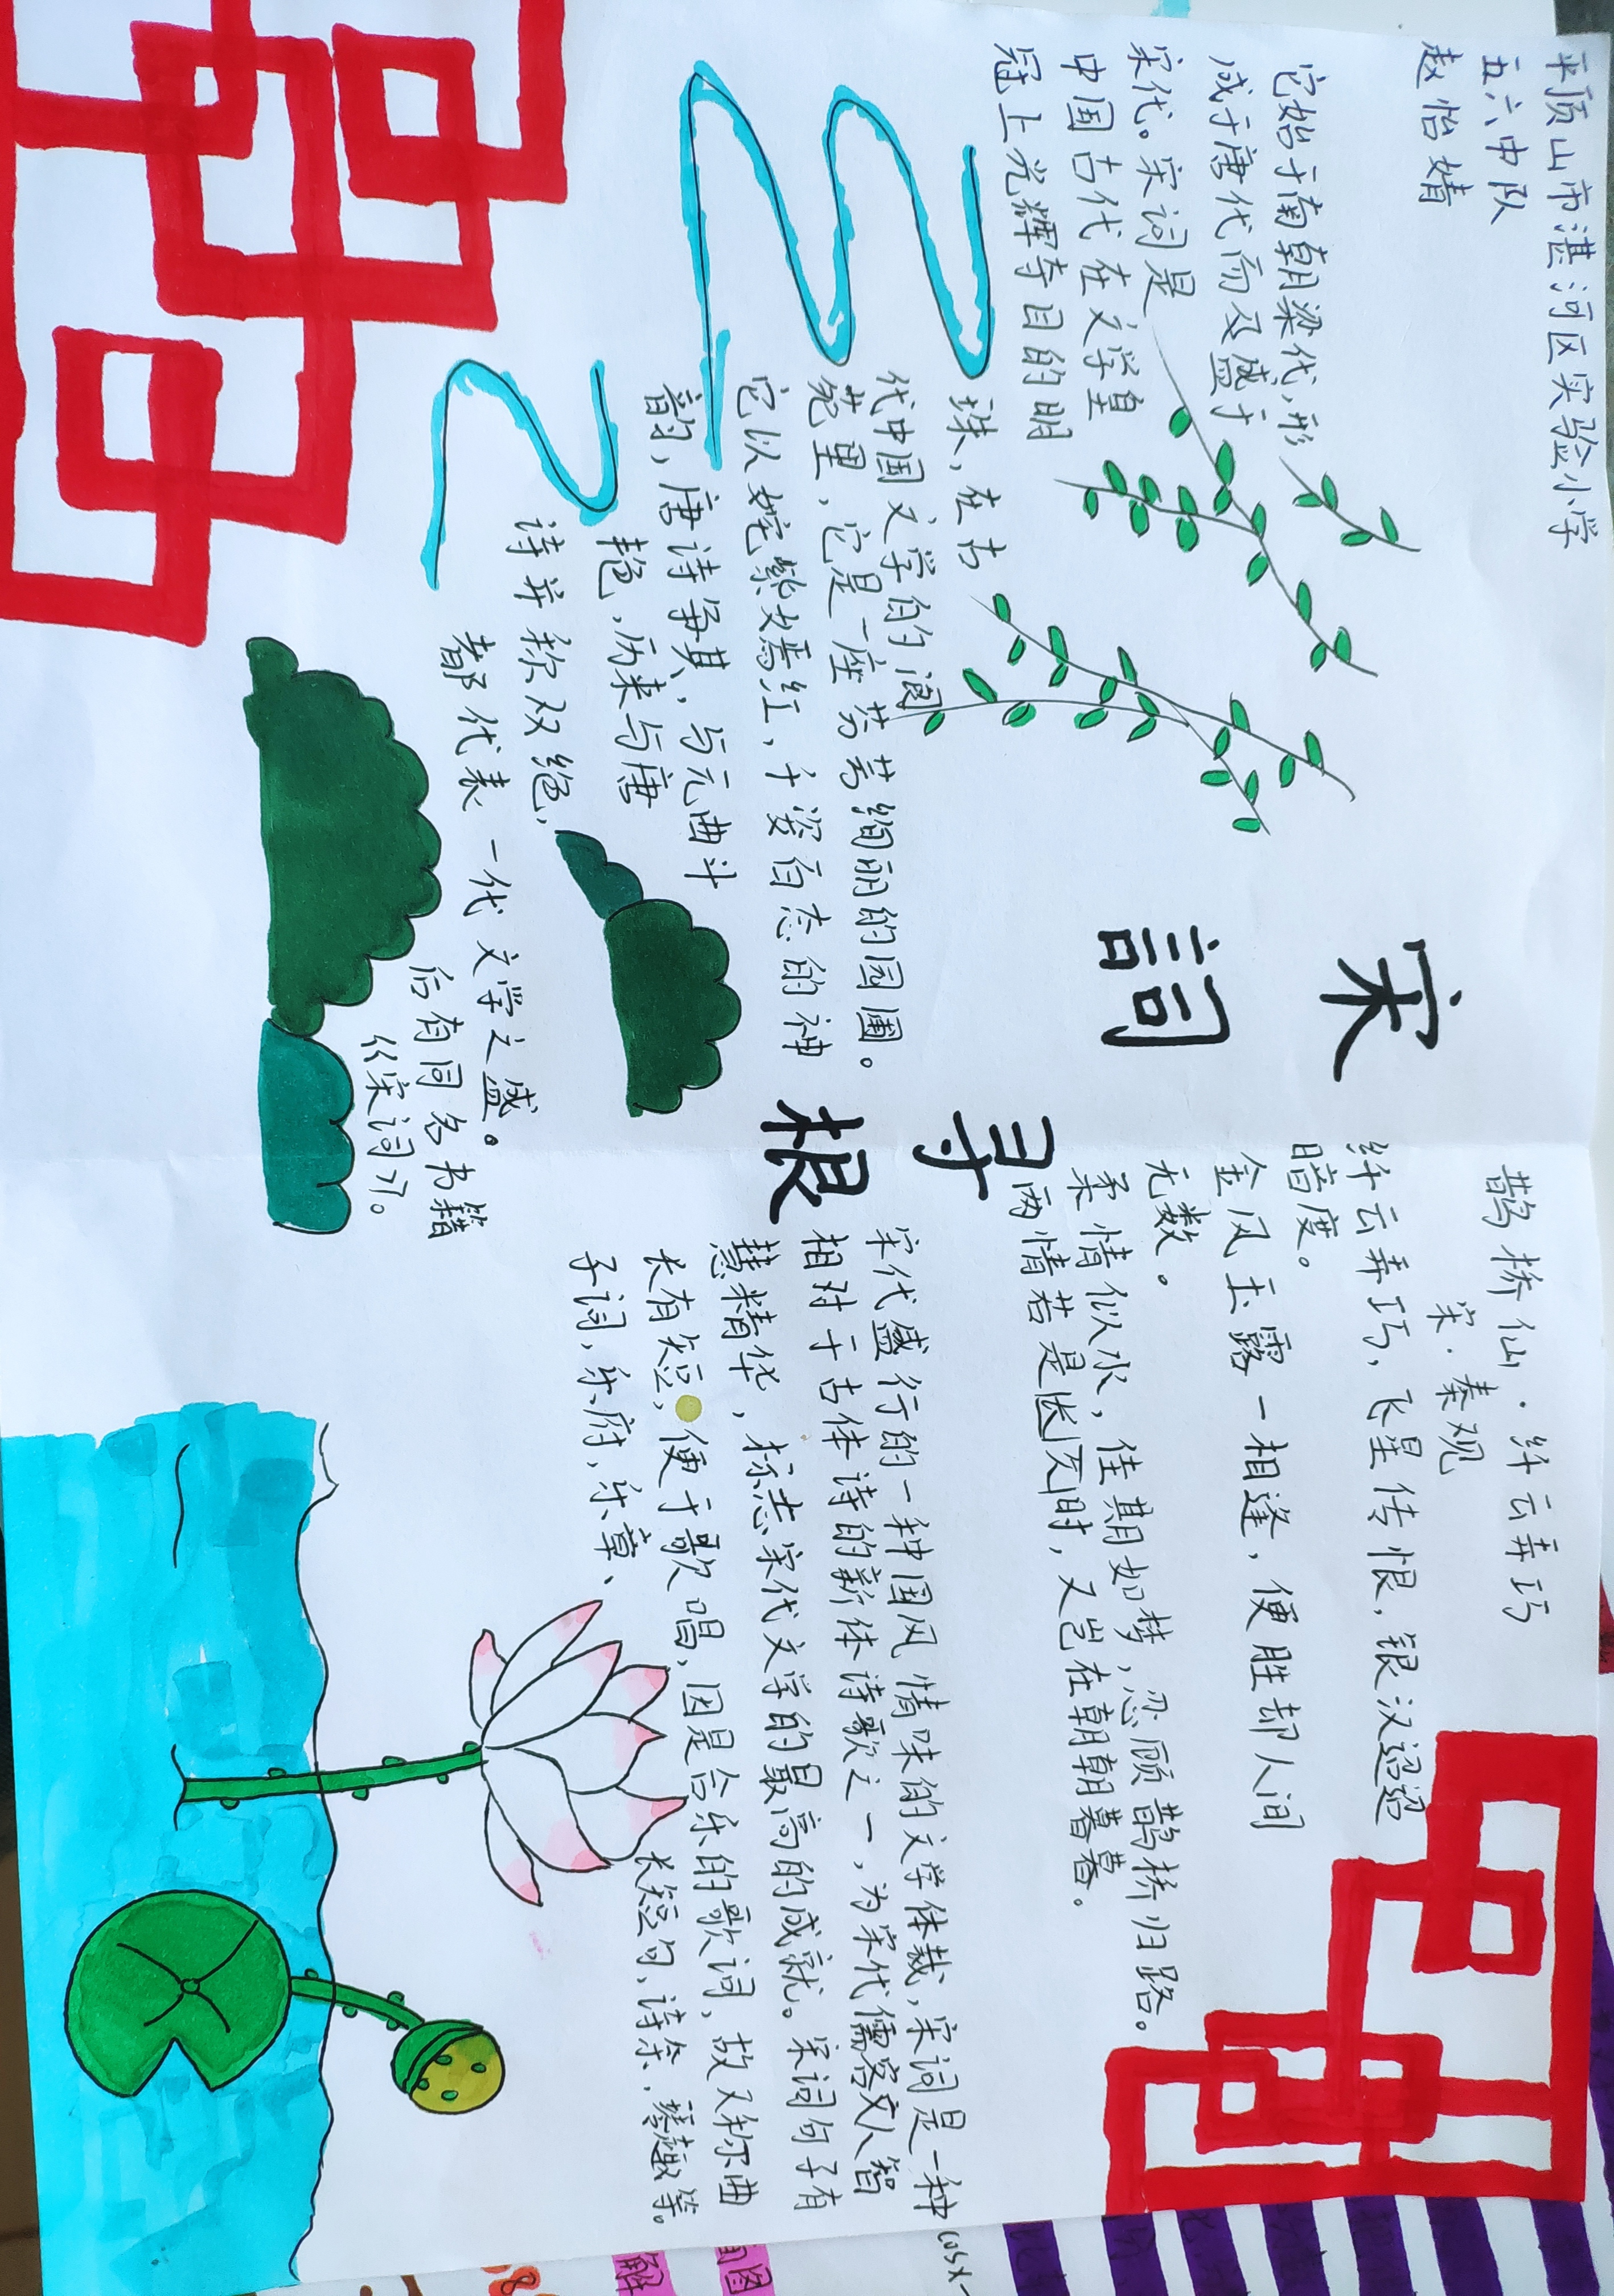 平顶山市湛河区实验小学
五六中队
赵怡婧
它始于南朝梁代,形
成于唐代而及盛于
宋代。宋词是
中国古代在文学皇
冠上光辉夺目的明
珠,在古
代中国文学的阆
苑里,它是一座芬芳绚丽的园圃。
它以姹紫嫣红,千姿百态的神
韵,唐诗争其,与元曲斗
艳,历来与唐
诗并称双绝,
都代表一代文学之盛。
后有同名书籍
《宋词》。
宋
詞
寻
根
鹊桥仙·纤云弄巧
宋·秦观
纤云弄巧,飞星传恨,银汉迢迢
暗度。
金风玉露一相逢,便胜却人间
无数。
柔情似水,佳期如梦,忍顾鹊桥归路。
两情若是长久时,又岂在朝朝暮暮。
宋代盛行的一种中国风情味的文学体裁,宋词是一种
相对于古体诗的新体诗歌之一,为宋代儒客文人智
慧精华,标志宋代文学的最高的成就。宋词句子有
长有短,便于歌唱,因是合乐的歌词,故又称曲
子词,乐府,乐章、
长短句,诗余,琴趣等。
cosx-
国图
解